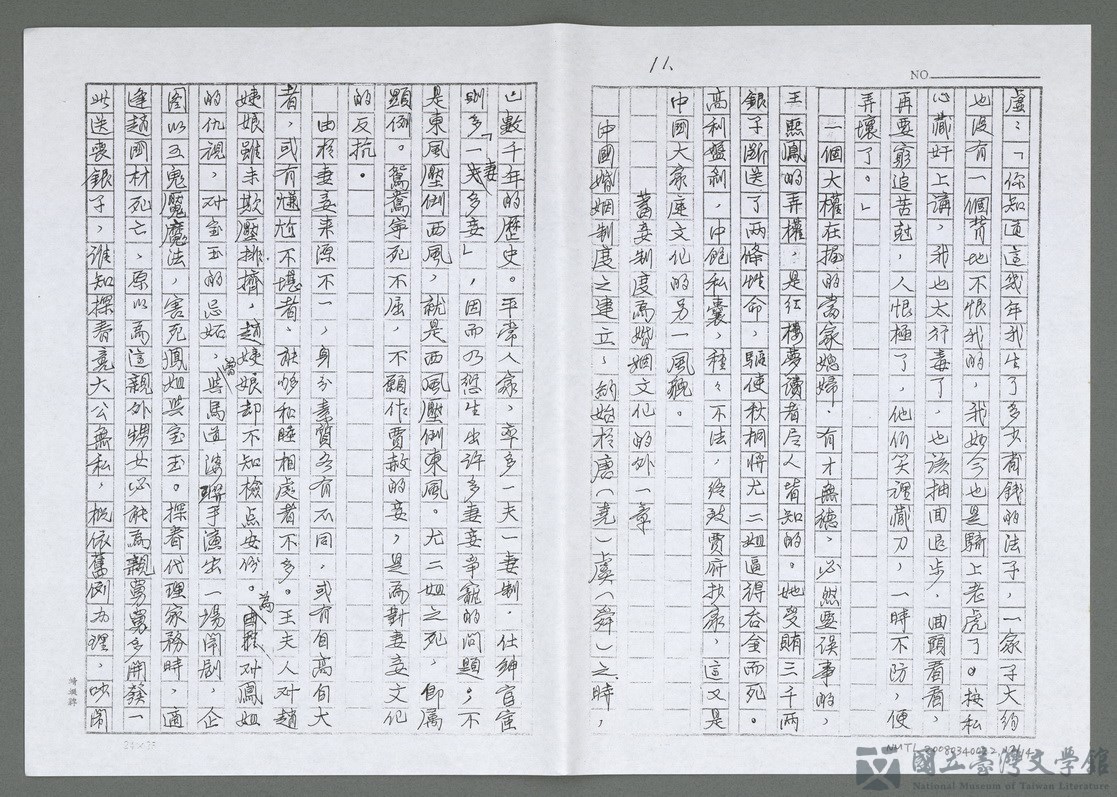 11.
NO
虛：「你知道這幾年我生了多少省錢的法子，一家子大約
也沒有一個背地不恨我的，我如今也是騎上老虎了。按私
心藏奸上講，我也太狠毒了，也該抽回退步，回頭看看，
再要窮追苦剋，人恨極了，他們笑裡藏刀，一時不防，便
弄壞了。」
一個大權在握的當家媳婦，有才無德，必然要誤事的，
王熙鳳的弄權，是紅樓夢讀者尽人皆知的。她受賄三千兩
銀子斷送了兩條性命，驅使秋桐將尤二姐逼得吞金而死。
高利盤剝，中飽私囊，種々不法，終致賈府抄家，這又是
中國大家庭文化的另一風貌。
蓄妾制度為婚姻文化的外一章
中國婚姻制度之建立，約始於唐（堯）虞（舜）之時，
已數千年的歷史。平常人家，率多一夫一妻制，仕紳官宦
則多「一夫多妻妾」，因而乃衍生出許多妻妾爭寵的問題，不
是東風壓倒西風，就是西風壓倒東風。尤二姐之死，即屬
顯例。鴛鴦寧死不屈，不願作賈赦的妾，是為對妻妾文化
的反抗。
由於妻妾來源不一，身分素質各有不同，或有自高自大
者，或有尷尬不堪者，能夠和睦相處者不多。王夫人对趙
姨娘雖未欺壓排擠，趙姨娘却不知檢点安份。為对鳳姐
的仇視，对宝玉的忌妬，曾與馬道婆聯手演出一場鬧劇，企
圖以五鬼魘魔法，害死鳳姐與宝玉。探春代理家務時，適
逢趙國材死亡，原以為這親外甥女必能為親舅舅多開發一
些送喪銀子，誰知探春竟大公無私，概依舊例办理，吵鬧
25×25
NMTL
國立臺灣文學館
National Museum of Taiwan Literature